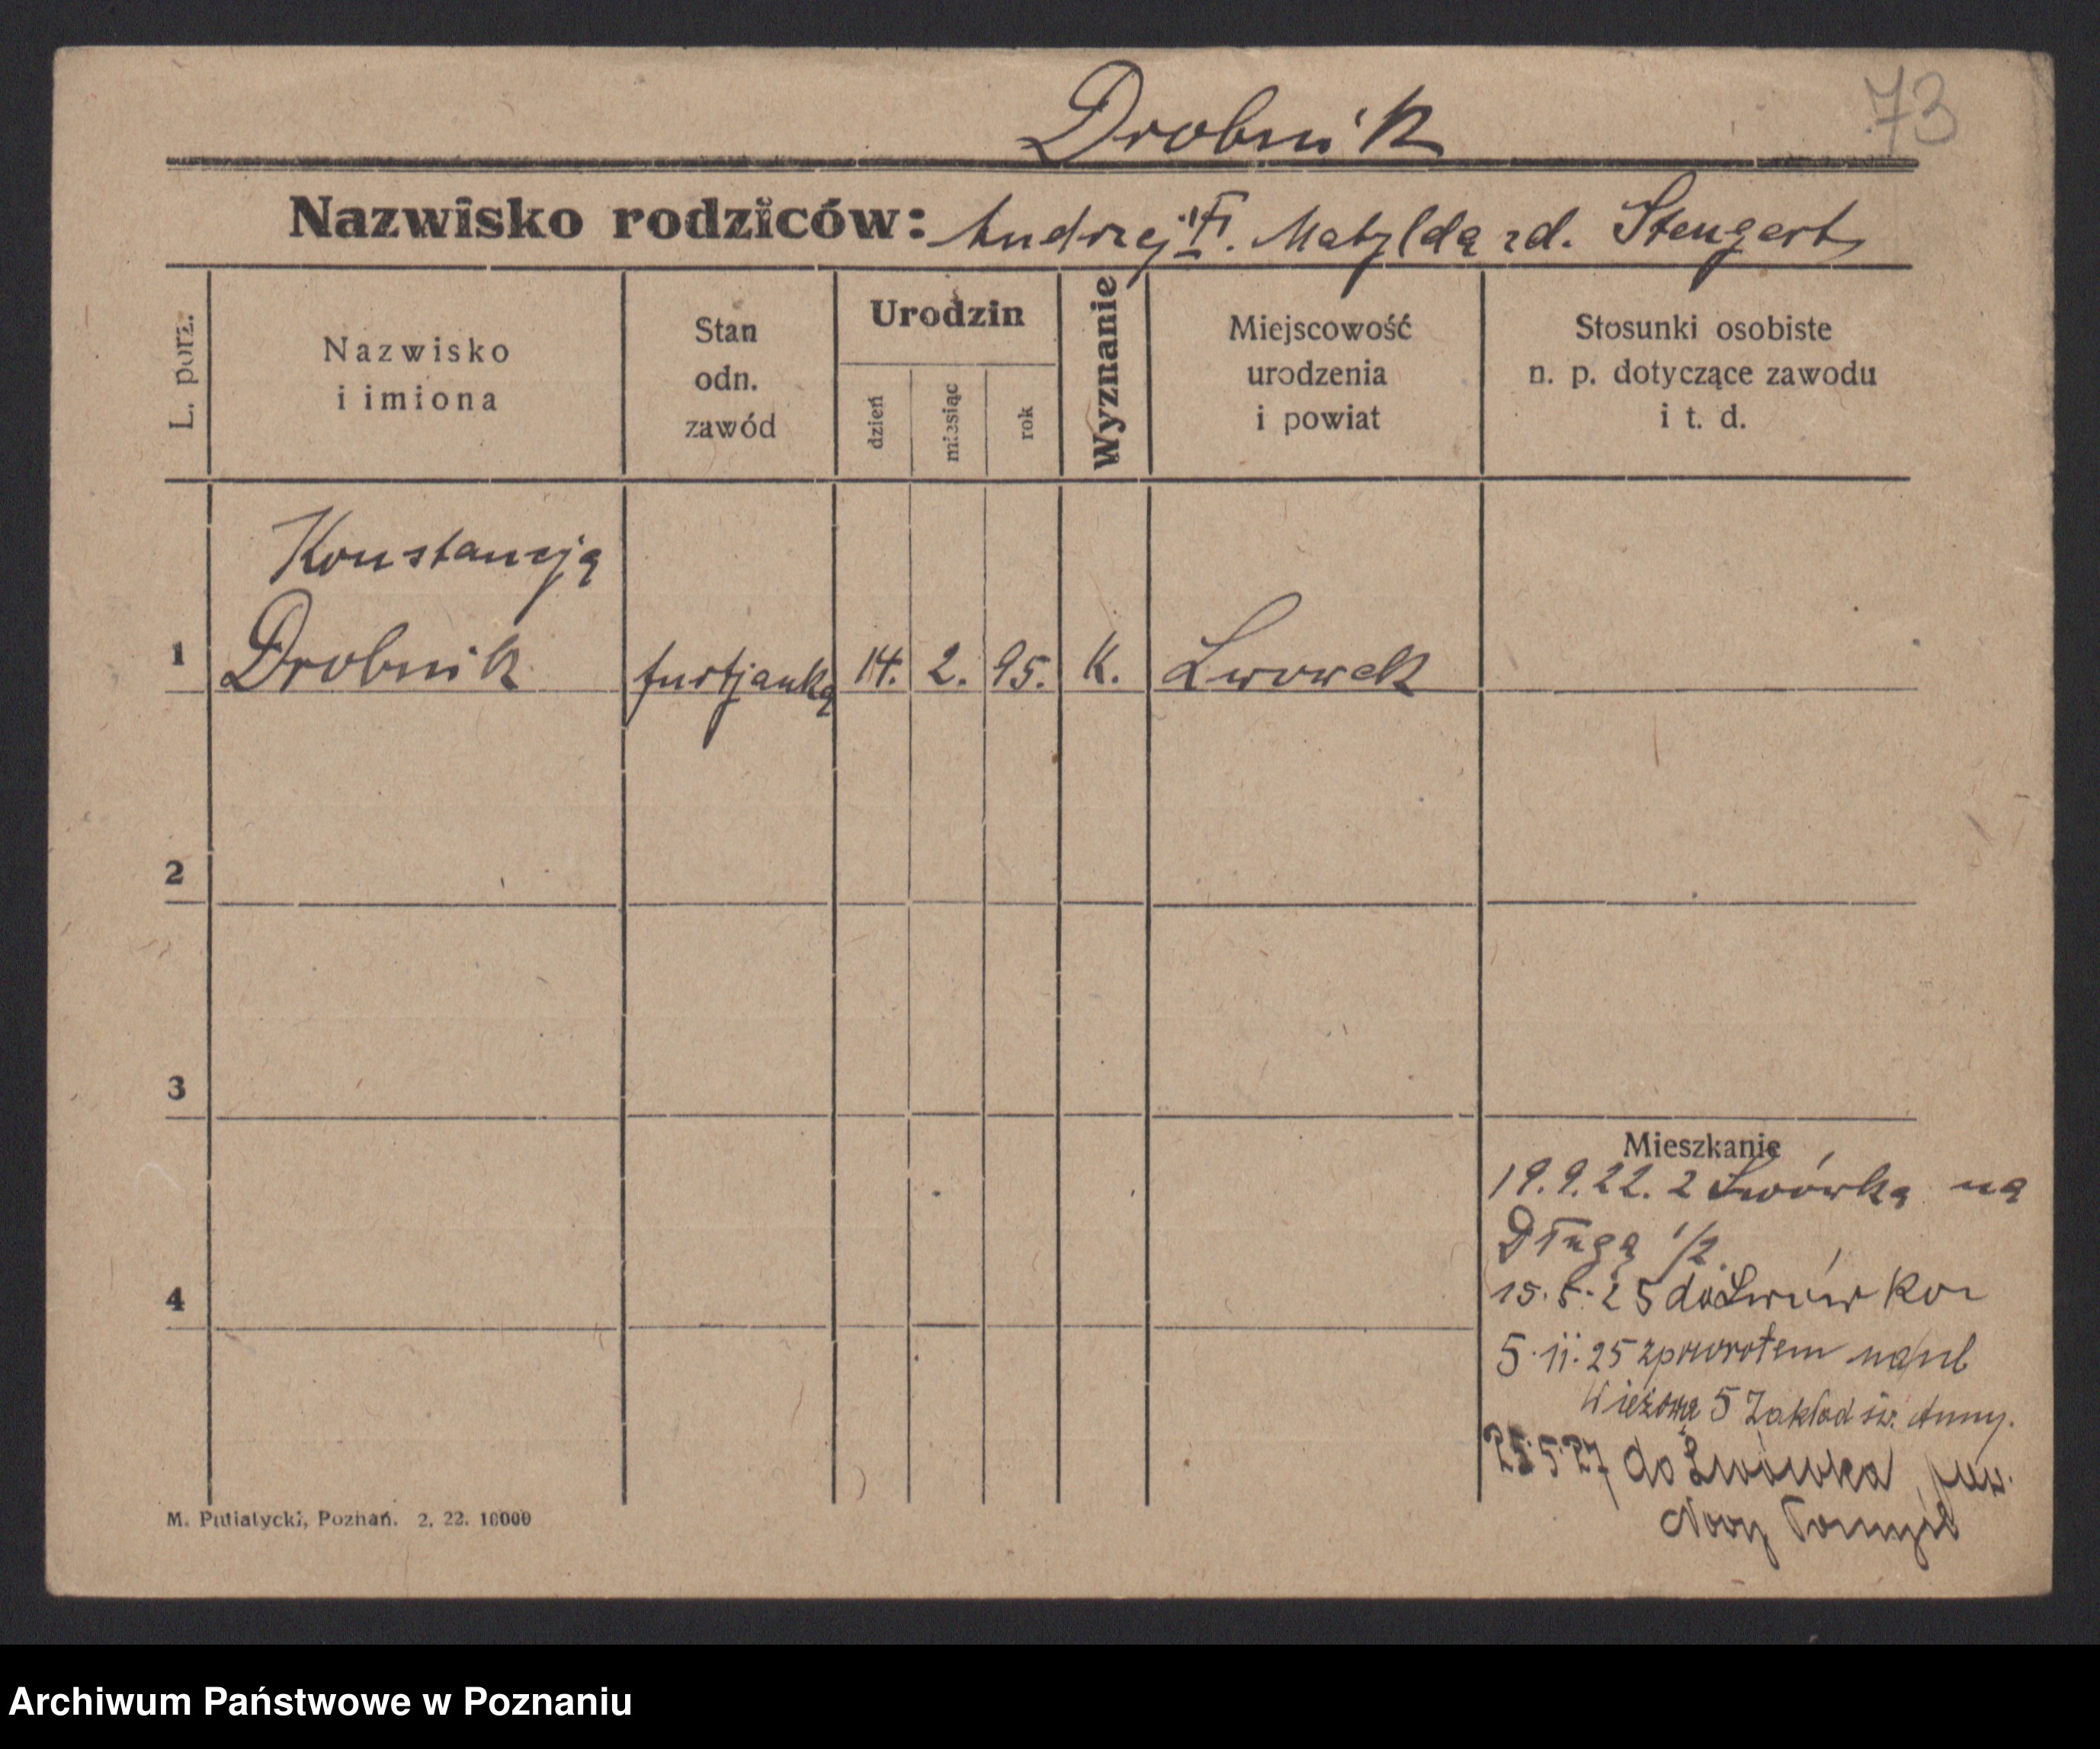 73
Drobnik
Nazwisko rodziców: Andrzej Ŧ. Matylda zd. Stengert
L. porz.
Nazwisko
i imiona
Stan
odn.
zawód
Urodzin
dzień
miesiąc
rok
Wyznanie
Miejscowość
urodzenia
i powiat
Stosunki osobiste
n. p. dotyczące zawodu
i t. d.
Konstancja
1 Drobnik furtjanka 14. 2. 95. K. Lwowek
2
3
4
Mieszkanie
19.9.22. z Lwówka na
Długą 1/2
15. 25 do Lwów
5.11.25 zpowrotem na ul
Wieżowa 5 Zakład św. Anny.
25.5.27 do Lwówka pow.
Nowy Tomyśl
M. Putiatycki, Poznań. 2. 22. 10000
Archiwum Państwowe w Poznaniu